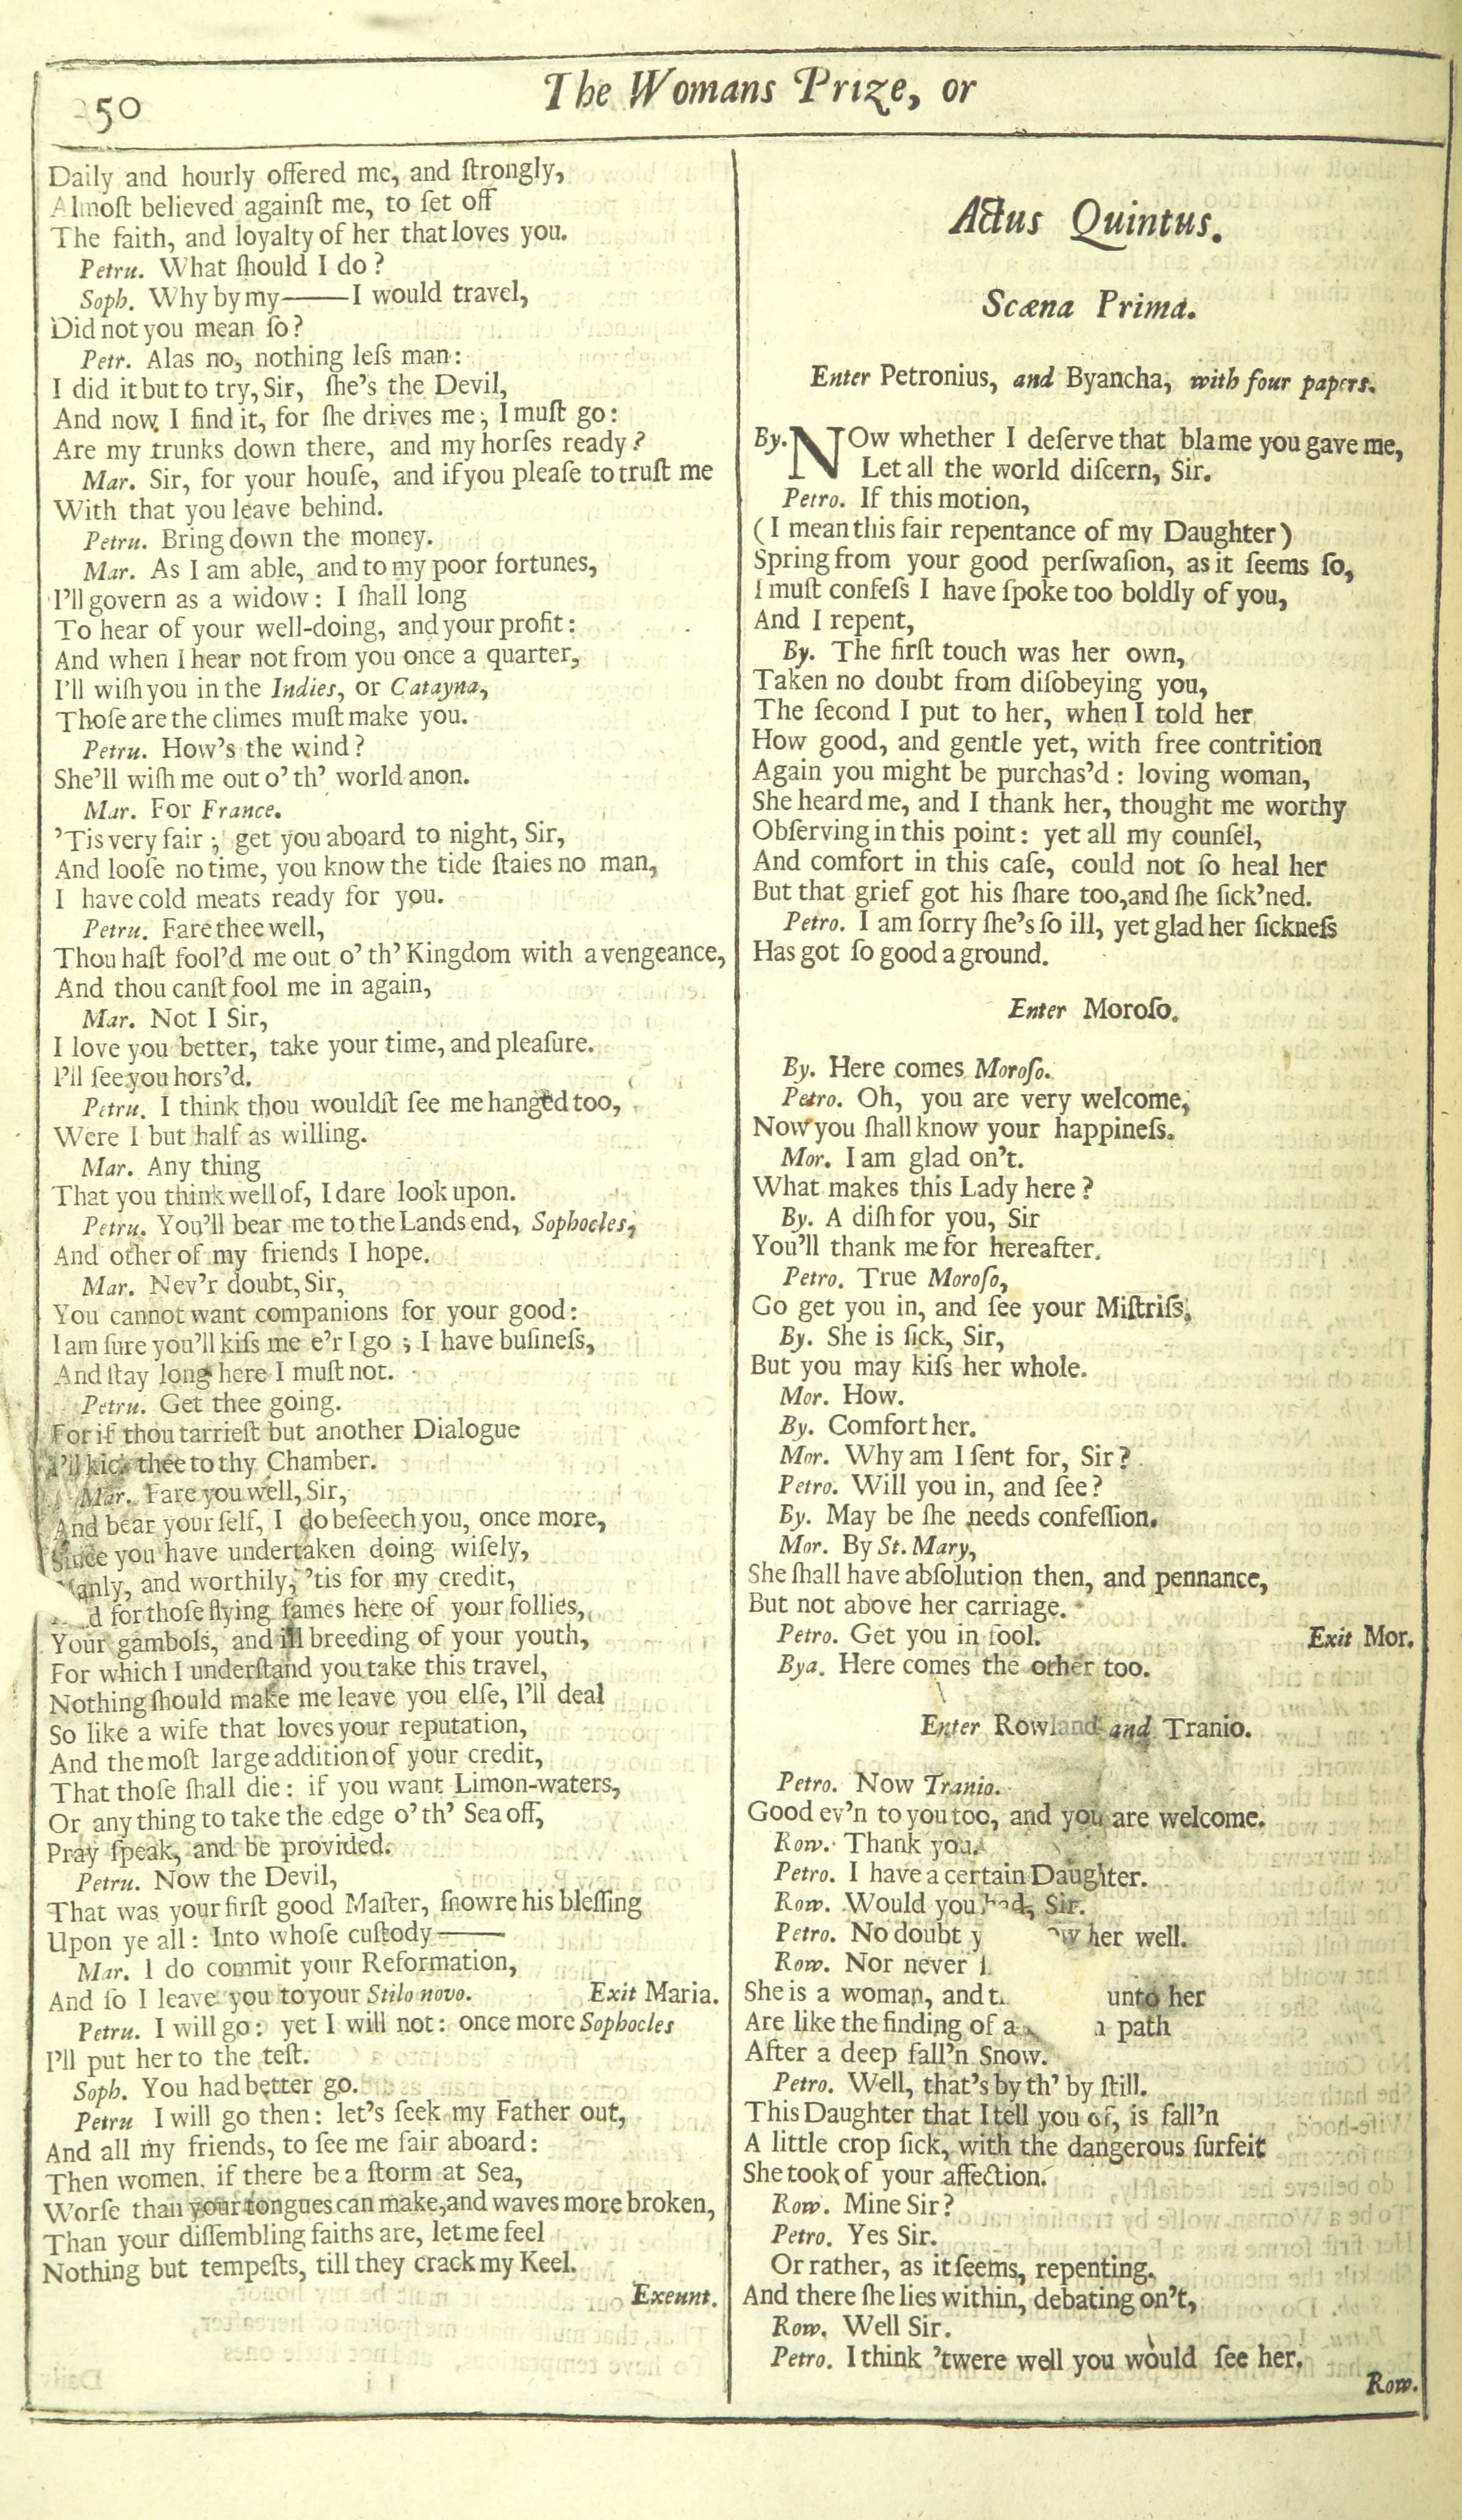 250
The Womans Prize, or
Daily and hourly offered me, and ſtrongly,
Almoſt believed againſt me, to ſet off
The faith, and loyalty of her that loves you.
Petru. What ſhould I do?
Soph. Why by my——I would travel,
Did not you mean ſo?
Petr. Alas no, nothing leſs man:
I did it but to try, Sir, ſhe's the Devil,
And now I find it, for ſhe drives me; I muſt go:
Are my trunks down there, and my horſes ready?
Mar. Sir, for your houſe, and if you pleaſe to truſt me
With that you leave behind.
Petru. Bring down the money.
Mar. As I am able, and to my poor fortunes,
I'll govern as a widow: I ſhall long
To hear of your well-doing, and your profit:
And when I hear not from you once a quarter,
I'll wiſh you in the Indies, or Catayna,
Thoſe are the climes muſt make you.
Petru. How's the wind?
She'll wiſh me out o' th' world anon.
Mar. For France.
'Tis very fair; get you aboard to night, Sir,
And looſe no time, you know the tide ſtaies no man,
I have cold meats ready for you.
Petru. Fare thee well,
Thou haſt fool'd me out o' th' Kingdom with a vengeance,
And thou canſt fool me in again,
Mar. Not I Sir,
I love you better, take your time, and pleaſure.
I'll ſee you hors'd.
Petru. I think thou wouldſt ſee me hanged too,
Were I but half as willing.
Mar. Any thing
That you think well of, I dare look upon.
Petru. You'll bear me to the Lands end, Sophocles,
And other of my friends I hope.
Mar. Nev'r doubt, Sir,
You cannot want companions for your good:
I am ſure you'll kiſs me e'r I go; I have buſineſs,
And ſtay long here I muſt not.
Petru. Get thee going.
For if thou tarrieſt but another Dialogue
I'll kick thee to thy Chamber.
Mar. Fare you well, Sir,
And bear your ſelf, I do beſeech you, once more,
Since you have undertaken doing wiſely,
Manly, and worthily, 'tis for my credit,
for thoſe flying fames here of your follies,
Your gambols, and ill breeding of your youth,
For which I underſtand you take this travel,
Nothing ſhould make me leave you elſe, I'll deal
So like a wife that loves your reputation,
And the moſt large addition of your credit,
That thoſe ſhall die: if you want Limon-waters,
Or any thing to take the edge o' th' Sea off,
Pray ſpeak, and be provided.
Petru. Now the Devil,
That was your firſt good Maſter, ſhowre his bleſſing
Upon ye all: Into whoſe cuſtody——
Mar. I do commit your Reformation,
And ſo I leave you to your Stilo novo. Exit Maria.
Petru. I will go: yet I will not: once more Sophocles
I'll put her to the teſt.
Soph. You had better go.
Petru I will go then: let's ſeek my Father out,
And all my friends, to ſee me fair aboard:
Then women, if there be a ſtorm at Sea,
Worſe than your tongues can make, and waves more broken,
Than your diſſembling faiths are, let me feel
Nothing but tempeſts, till they crack my Keel.
Exeunt.
Actus Quintus.
Scæna Prima.
Enter Petronius, and Byancha, with four papers.
By. NOw whether I deſerve that blame you gave me,
Let all the world diſcern, Sir.
Petro. If this motion,
(I mean this fair repentance of my Daughter)
Spring from your good perſwaſion, as it ſeems ſo,
I muſt confeſs I have ſpoke too boldly of you,
And I repent,
By. The firſt touch was her own,
Taken no doubt from diſobeying you,
The ſecond I put to her, when I told her
How good, and gentle yet, with free contrition
Again you might be purchas'd: loving woman,
She heard me, and I thank her, thought me worthy
Obſerving in this point: yet all my counſel,
And comfort in this caſe, could not ſo heal her
But that grief got his ſhare too, and ſhe ſick'ned.
Petro. I am ſorry ſhe's ſo ill, yet glad her ſickneſs
Has got ſo good a ground.
Enter Moroſo.
By. Here comes Moroſo.
Petro. Oh, you are very welcome,
Now you ſhall know your happineſs.
Mor. I am glad on't.
What makes this Lady here?
By. A diſh for you, Sir
You'll thank me for hereafter.
Petro. True Moroſo,
Go get you in, and ſee your Miſtriſs.
By. She is ſick, Sir,
But you may kiſs her whole.
Mor. How.
By. Comfort her.
Mor. Why am I ſent for, Sir?
Petro. Will you in, and ſee?
By. May be ſhe needs confeſſion.
Mor. By St. Mary,
She ſhall have abſolution then, and pennance,
But not above her carriage.
Petro. Get you in fool. Exit Mor.
Bya. Here comes the other too.
Enter Rowland and Tranio.
Petro. Now Tranio.
Good ev'n to you too, and you are welcome.
Row. Thank you.
Petro. I have a certain Daughter.
Row. Would you had, Sir.
Petro. No doubt her well.
Row. Nor never
She is a woman, and unto her
Are like the finding of a path
After a deep fall'n Snow.
Petro. Well, that's by th' by ſtill.
This Daughter that I tell you of, is fall'n
A little crop ſick, with the dangerous ſurfeit
She took of your affection.
Row. Mine Sir?
Petro. Yes Sir.
Or rather, as it ſeems, repenting.
And there ſhe lies within, debating on't,
Row. Well Sir.
Petro. I think 'twere well you would ſee her.
Row.